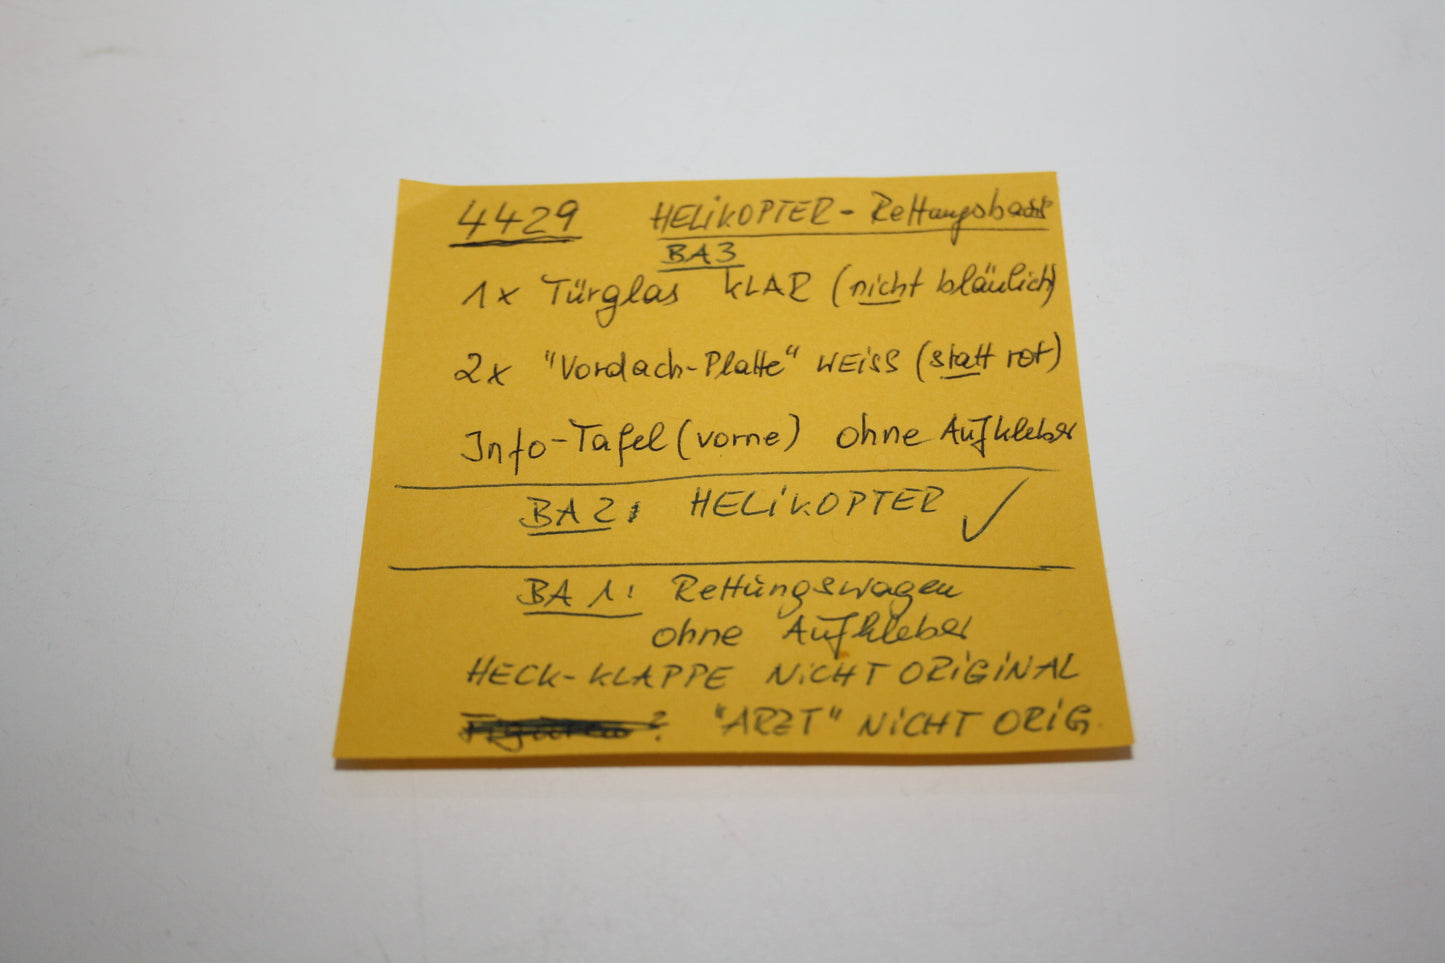 4429 HELiKOPTER-Rettungsbasis
BA3
1x Türglas KLAR (nicht bläulich)
2x "Vordach-Platte" WEiSS (statt rot)
Info-Tafel (vorne) ohne Aufkleber
BA2: HELiKOPTER ✓
BA 1: Rettungswagen
ohne Aufkleber
HECK-KLAPPE NiCHT ORiGiNAL
? "ARZT" NiCHT ORiG.